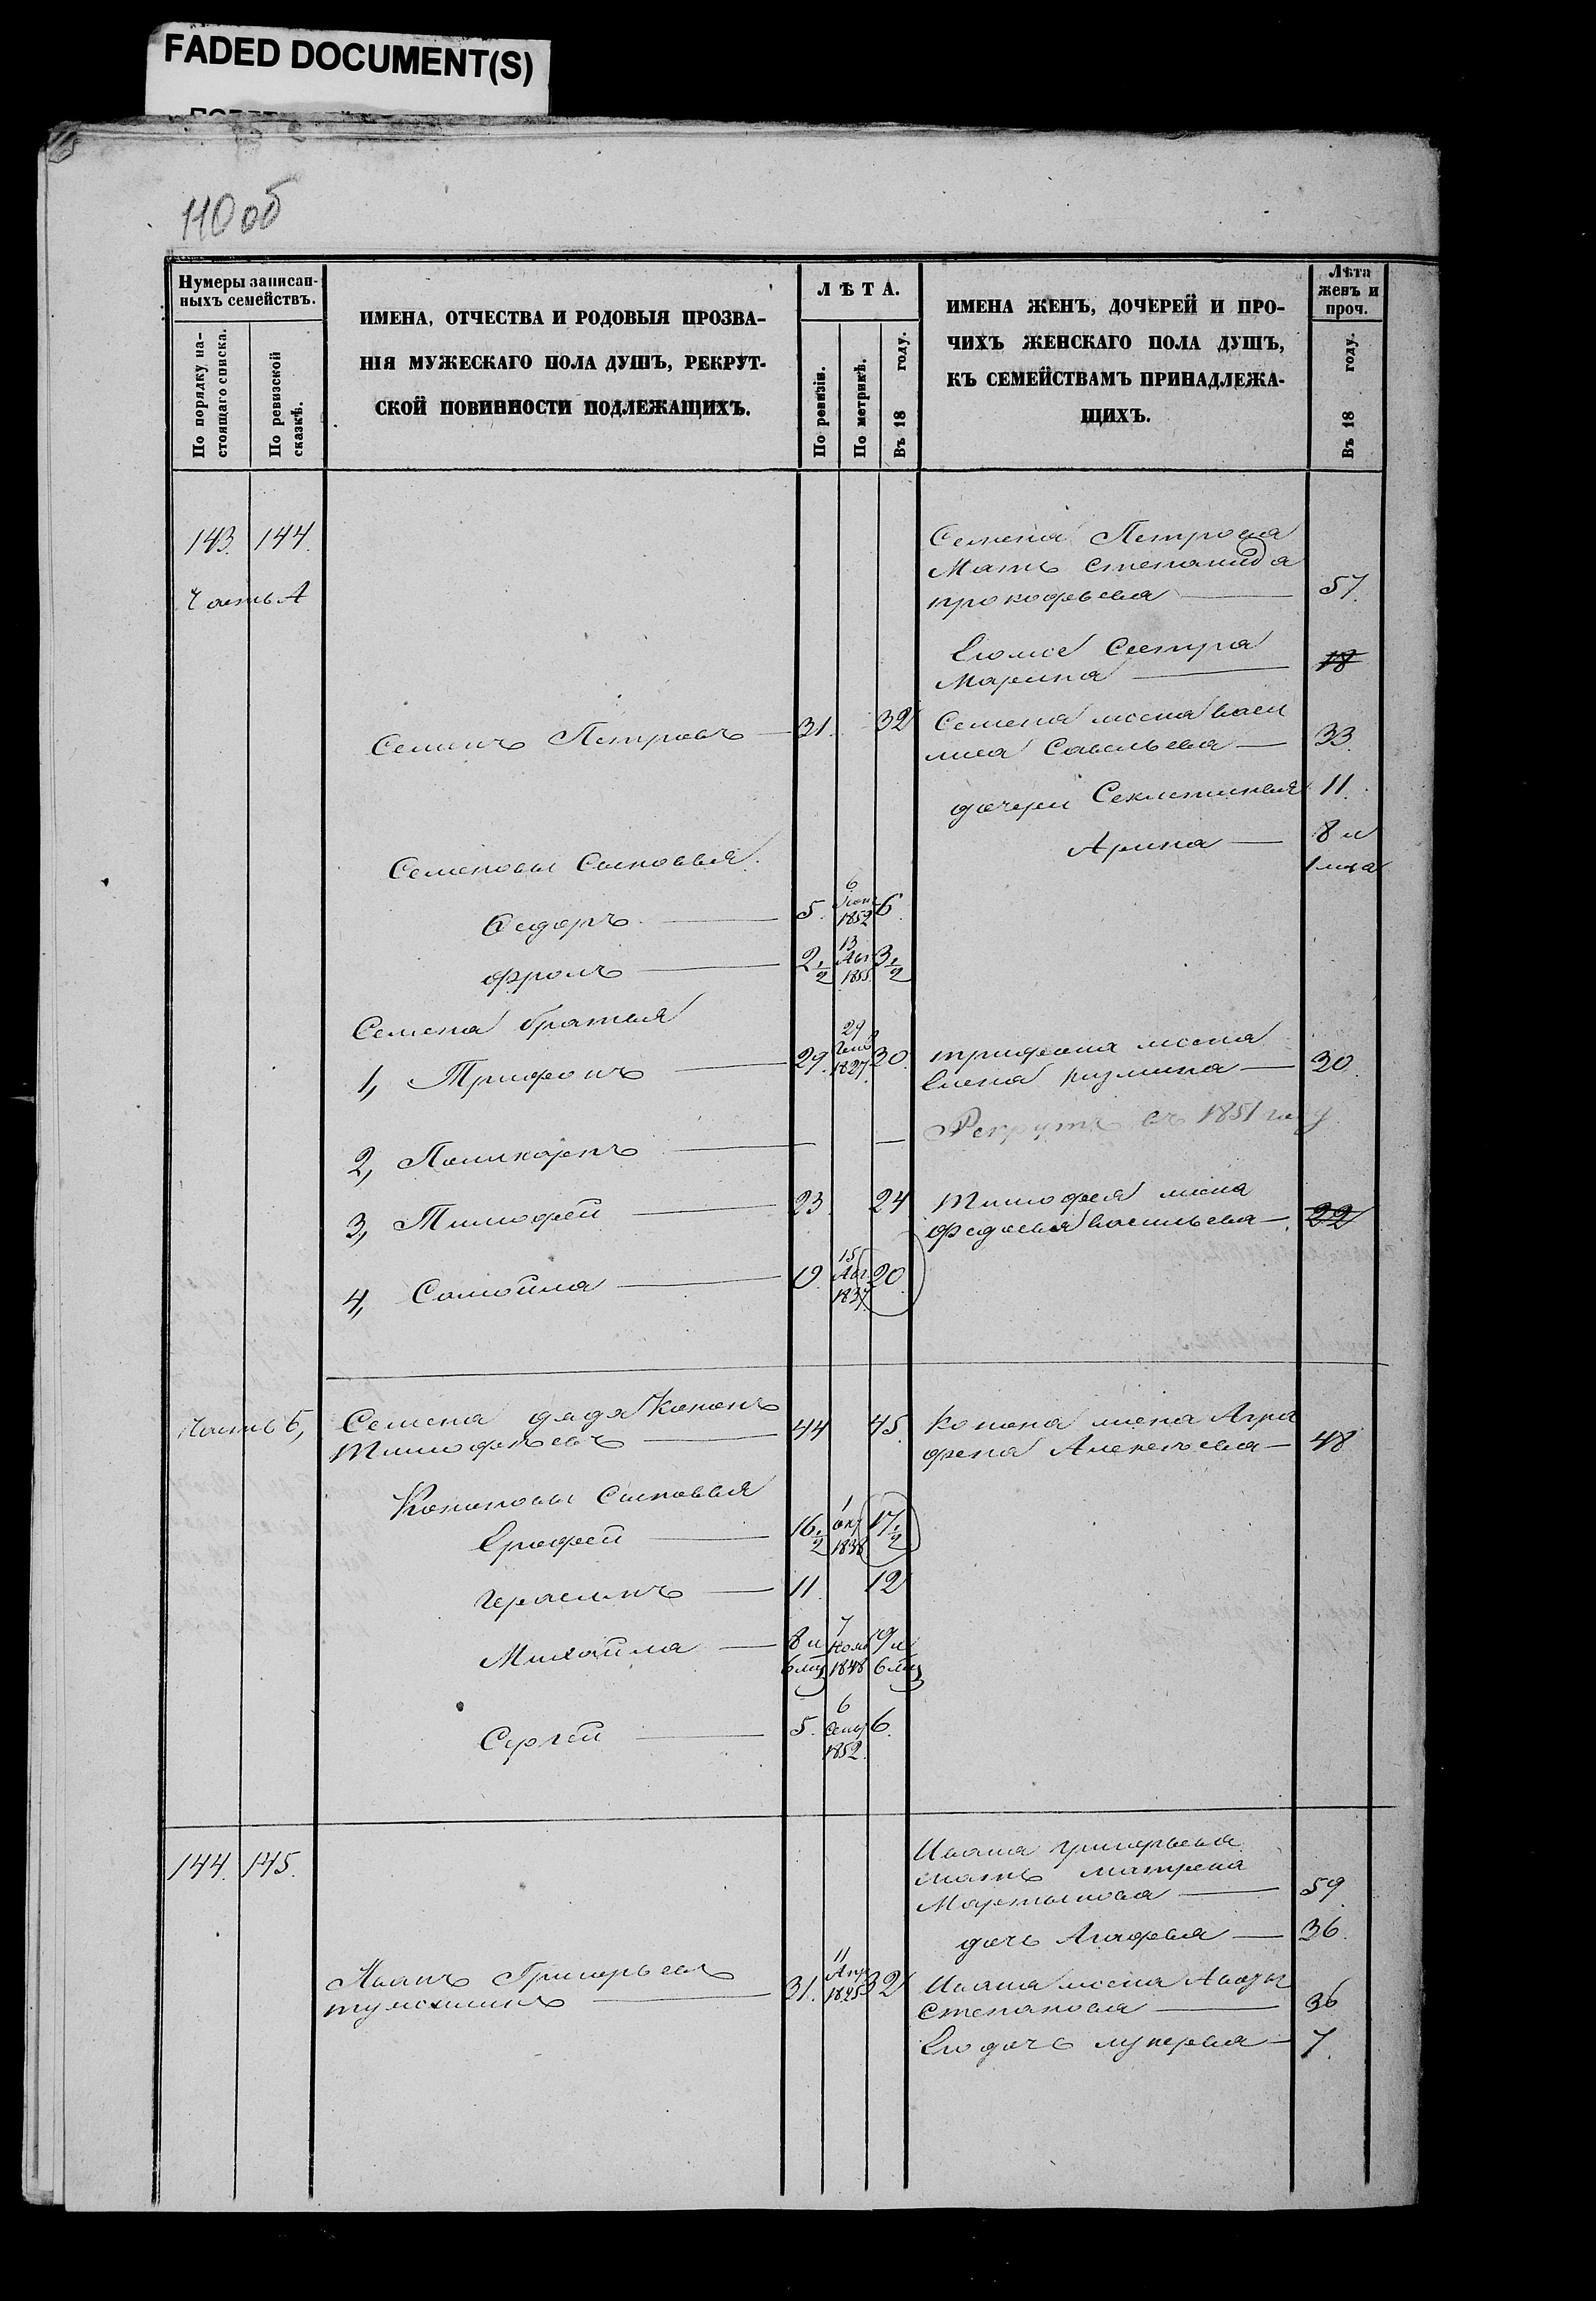 FADED DOCUMENT(S)
110 об
Нумеры записан-
ныхъ семействъ.
По порядку на-
стоящаго списка.
По ревизской
сказкѣ.
ИМЕНА, ОТЧЕСТВА И РОДОВЫЯ ПРОЗВА-
НІЯ МУЖЕСКАГО ПОЛА ДУШЪ, РЕКРУТ-
СКОЙ ПОВИННОСТИ ПОДЛЕЖАЩИХЪ.
ЛѢТА.
По ревизіи.
По метрикѣ.
Въ 18 году.
ИМЕНА ЖЕНЪ, ДОЧЕРЕЙ И ПРО-
ЧИХЪ ЖЕНСКАГО ПОЛА ДУШЪ,
КЪ СЕМЕЙСТВАМЪ ПРИНАДЛЕЖА-
ЩИХЪ.
Лѣта
женъ и
проч.
Въ 18 году.
143. 144.
Часть А
Семена Петрова
Мать Степанида
прокофьева 57.
Сестра
Марина 18
Семенъ Петровъ 31. 32
Семена жена васи
лиса Савельева 33.
дочери Секлетинья 11.
Арина 8 и
1 мца
Семеновы Сыновья
Ѳедоръ 5. 6 1852 6.
фролъ 2 1/2 13 Авг 1855 3 1/2
Семена братья
1, Трифонъ 29. 29 Генв 1827. 30.
трифона жена
Елена кузмина 30.
2, Поликарпъ
Рекрутъ въ 1851 году
3, Тимофей 23. 24
Тимофея жена
федосья васильева 22
4, Самойла 19. 15 Авг 1837. 20.
Часть Б,
Семена дядя Кононъ
Тимофеевъ 44 45.
Конона жена Агра
фена Алексеева 48
Кононовы Сыновья
Ерофей 16 1/2 1 окт 1838 17 1/2
Герасимъ 11. 12
Михайла 8 и 6 мц 7 Нояб 1848 9 и 6 мц
Сергей 5. 6 Сент 1852. 6.
144. 145.
Ивана григорьева
мать матрена
Мартынова 59
дочь Агафья 36.
Иванъ Григорьевъ 31. 11 Апр 1825 32
Ивана жена Авдотья
Степанова 36
Его дочь лукерья 7.